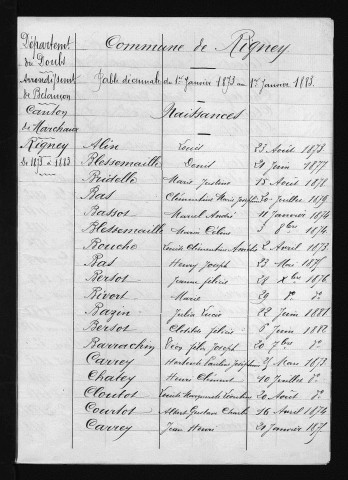 Départemt
du Doubs
Arrondissemt
de Besançon
Canton
de Marchaux
Rigney
de 1873 à 1883
Commune de Rigney
Table décennale du 1er Janvier 1873 au 1er Janvier 1883.
Naissances
Alix Louis 23 Août 1873
Blessemaille Denis 21 Juin 1877
Bridelle Marie Justine 15 Août 1878
Bas Clémentine Marie Josephine 20 Juillet 1879
Bassot Marcel André 11 Janvier 1874
Blessemaille Marie Céline 3 8bre 1874
Bouche Louis Clémentin 2 Avril 1873
Bas Henry Joseph 23 Mai 1875
Bersot Jeanne félicie 24 Xbre 1876
Bivort Marie 29 do do
Bazin Julia Lucie 22 Juin 1881
Bersot Clotilde félicie 6 Juin 1882
Barrachin félix Joseph 20 7bre do
Carrey Pauline Joséphine Mars 1873
Chatey Henri Clément 10 Juillet do
Cloutot Louis 20 Août do
Courtot Albert Gustave Charles 16 Avril 1874
Carrey Jean Henri 21 Janvier 1875